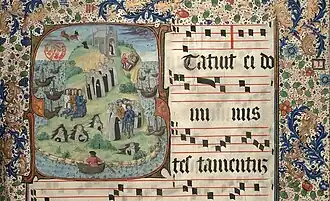 Tatuit ei do
mi nus
tes tamentuz